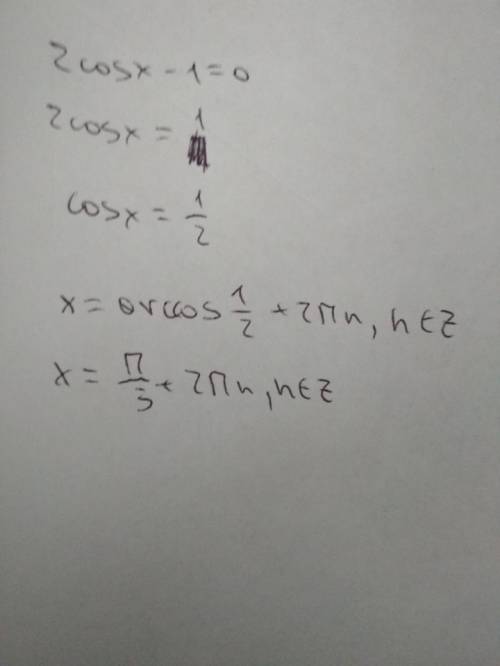 2cosx - 1 = 0
2cosx = 1
cosx = 1/2
x = arccos 1/2 + 2πn, n∈Z
x = π/3 + 2πn, n∈Z